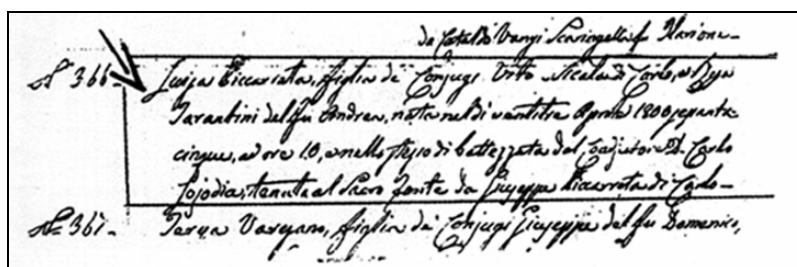 da Cataldo Vangi Scaringella fu Ilarione
N. 366. Luisa Piccarreta, figlia de' Conjugi Vito Nicola di Carlo, e Rosa
Tarantini del fu Andrea, nata nel dì ventitre Aprile 1800sessanta
cinque, ad ore 10, e nello stesso dì battezzata dal Coadjutore D. Carlo
Lojodice, tenuta al Sacro fonte da Giuseppe Piccarreta di Carlo
N. 367. Vangano, figlia de' Conjugi Giuseppe del fu Domenico,